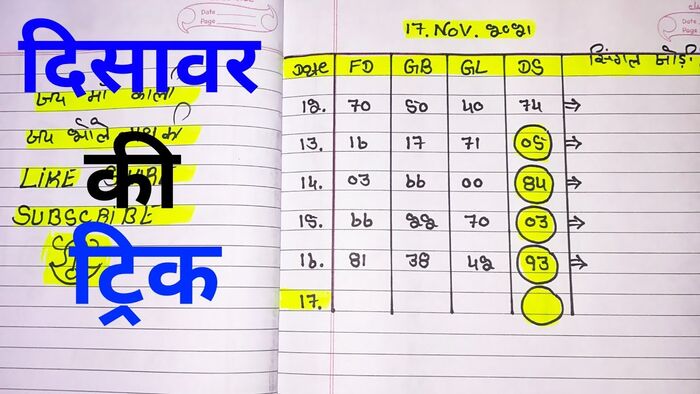 Date
Page
Date
Page
दिसावर
की
ट्रिक
जय माँ काली
जय भोले
LIKE
SUBSCRIBE
17. NOV. 2021
Date FD GB GL DS सिंगल जोड़ी
12. 70 50 40 74 ⇒
13. 16 17 71 05 ⇒
14. 03 66 00 84 ⇒
15. 66 22 70 03 ⇒
16. 81 38 42 93 ⇒
17.